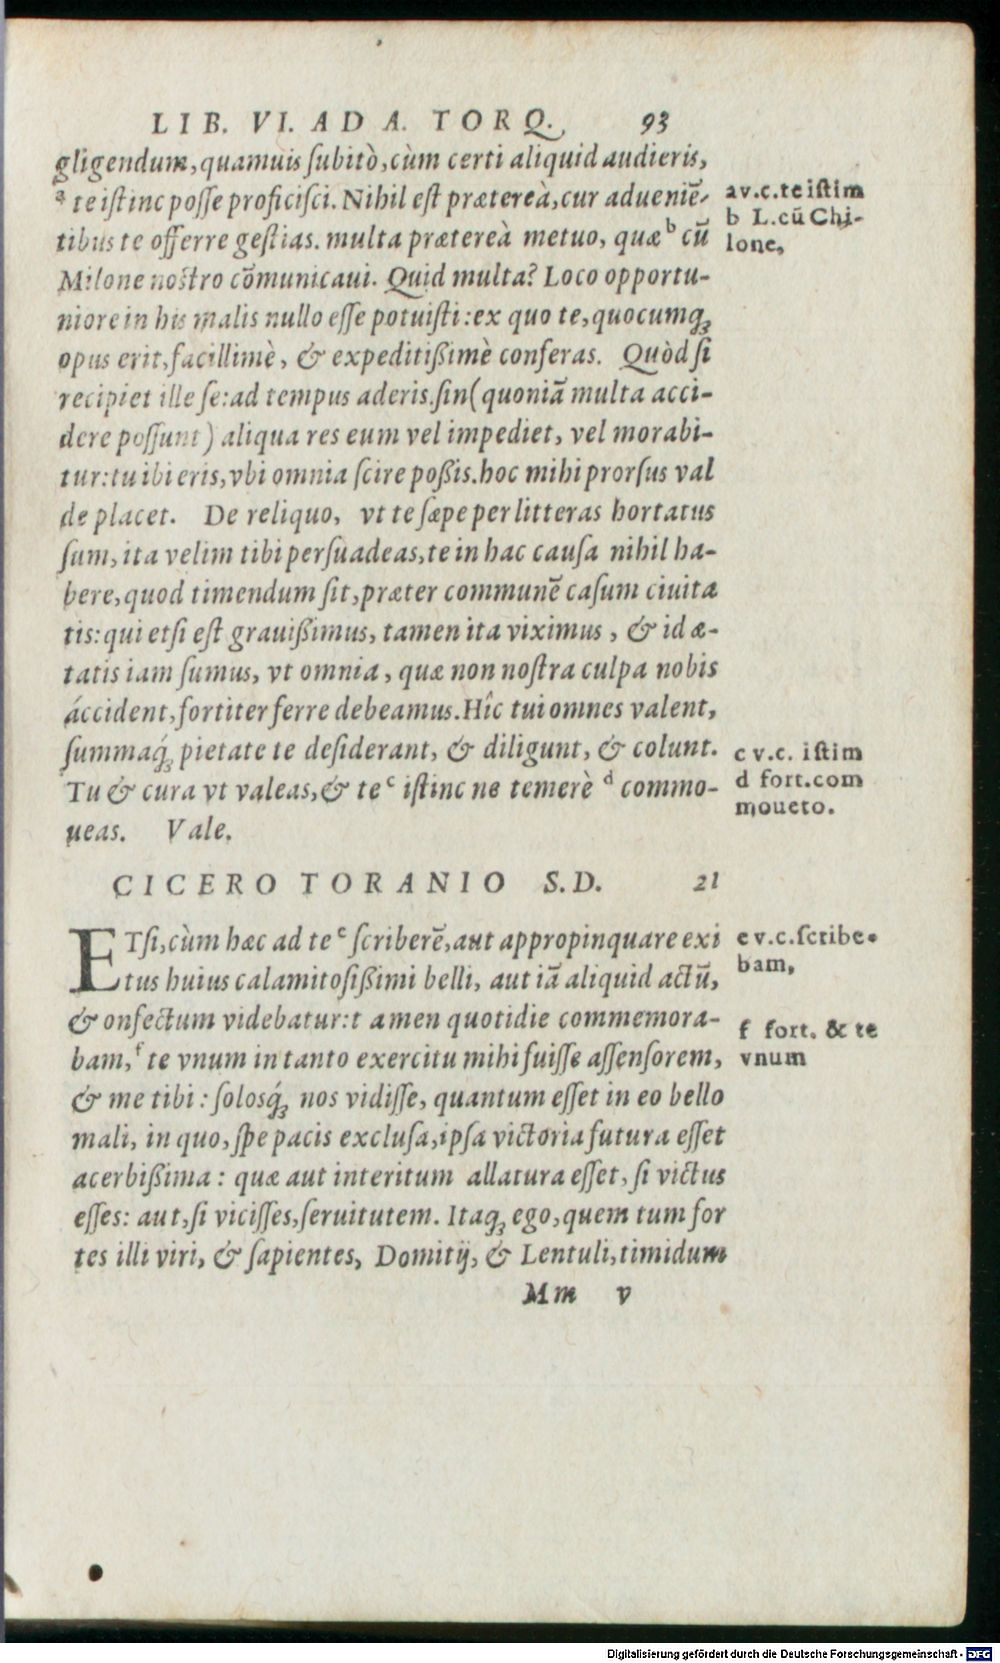 LIB. VI. AD A. TORQ. 93
gligendum, quamuis subitò, cùm certi aliquid audieris,
ᵃ te istinc posse proficisci. Nihil est prætereà, cur adueniē-
tibus te offerre gestias. multa prætereà metuo, quæ ᵇ cū
Milone nostro cōmunicaui. Quid multa? Loco opportu-
niore in his malis nullo esse potuisti: ex quo te, quocumq́;
opus erit, facillimè, & expeditißimè conferas. Quòd si
recipiet ille se: ad tempus aderis. sin (quoniā multa acci-
dere possunt) aliqua res eum vel impediet, vel morabi-
tur: tu ibi eris, vbi omnia scire poßis. hoc mihi prorsus val
de placet. De reliquo, vt te sæpe per litteras hortatus
sum, ita velim tibi persuadeas, te in hac causa nihil ha-
bere, quod timendum sit, præter communē casum ciuita
tis: qui etsi est grauißimus, tamen ita viximus, & id æ-
tatis iam sumus, vt omnia, quæ non nostra culpa nobis
áccident, fortiter ferre debeamus. Hîc tui omnes valent,
summaq́; pietate te desiderant, & diligunt, & colunt.
Tu & cura vt valeas, & te ᶜ istinc ne temerè ᵈ commo-
ueas. Vale.
a v.c. te istim
b L. cū Chi-
lone,
c v.c. istim
d fort. com
moueto.
CICERO TORANIO S.D. 21
ETsi, cùm hæc ad te ᵉ scriberē, aut appropinquare exi
tus huius calamitosißimi belli, aut iā aliquid actū,
& onfectum videbatur: t amen quotidie commemora-
bam, ᶠ te vnum in tanto exercitu mihi fuisse assensorem,
& me tibi: solosq́; nos vidisse, quantum esset in eo bello
mali, in quo, spe pacis exclusa, ipsa victoria futura esset
acerbißima: quæ aut interitum allatura esset, si victus
esses: aut, si vicisses, seruitutem. Itaq; ego, quem tum for
tes illi viri, & sapientes, Domitij, & Lentuli, timidum
e v.c. scribe-
bam,
f fort. & te
vnum
Mm v
Digitalisierung gefördert durch die Deutsche Forschungsgemeinschaft - DFG